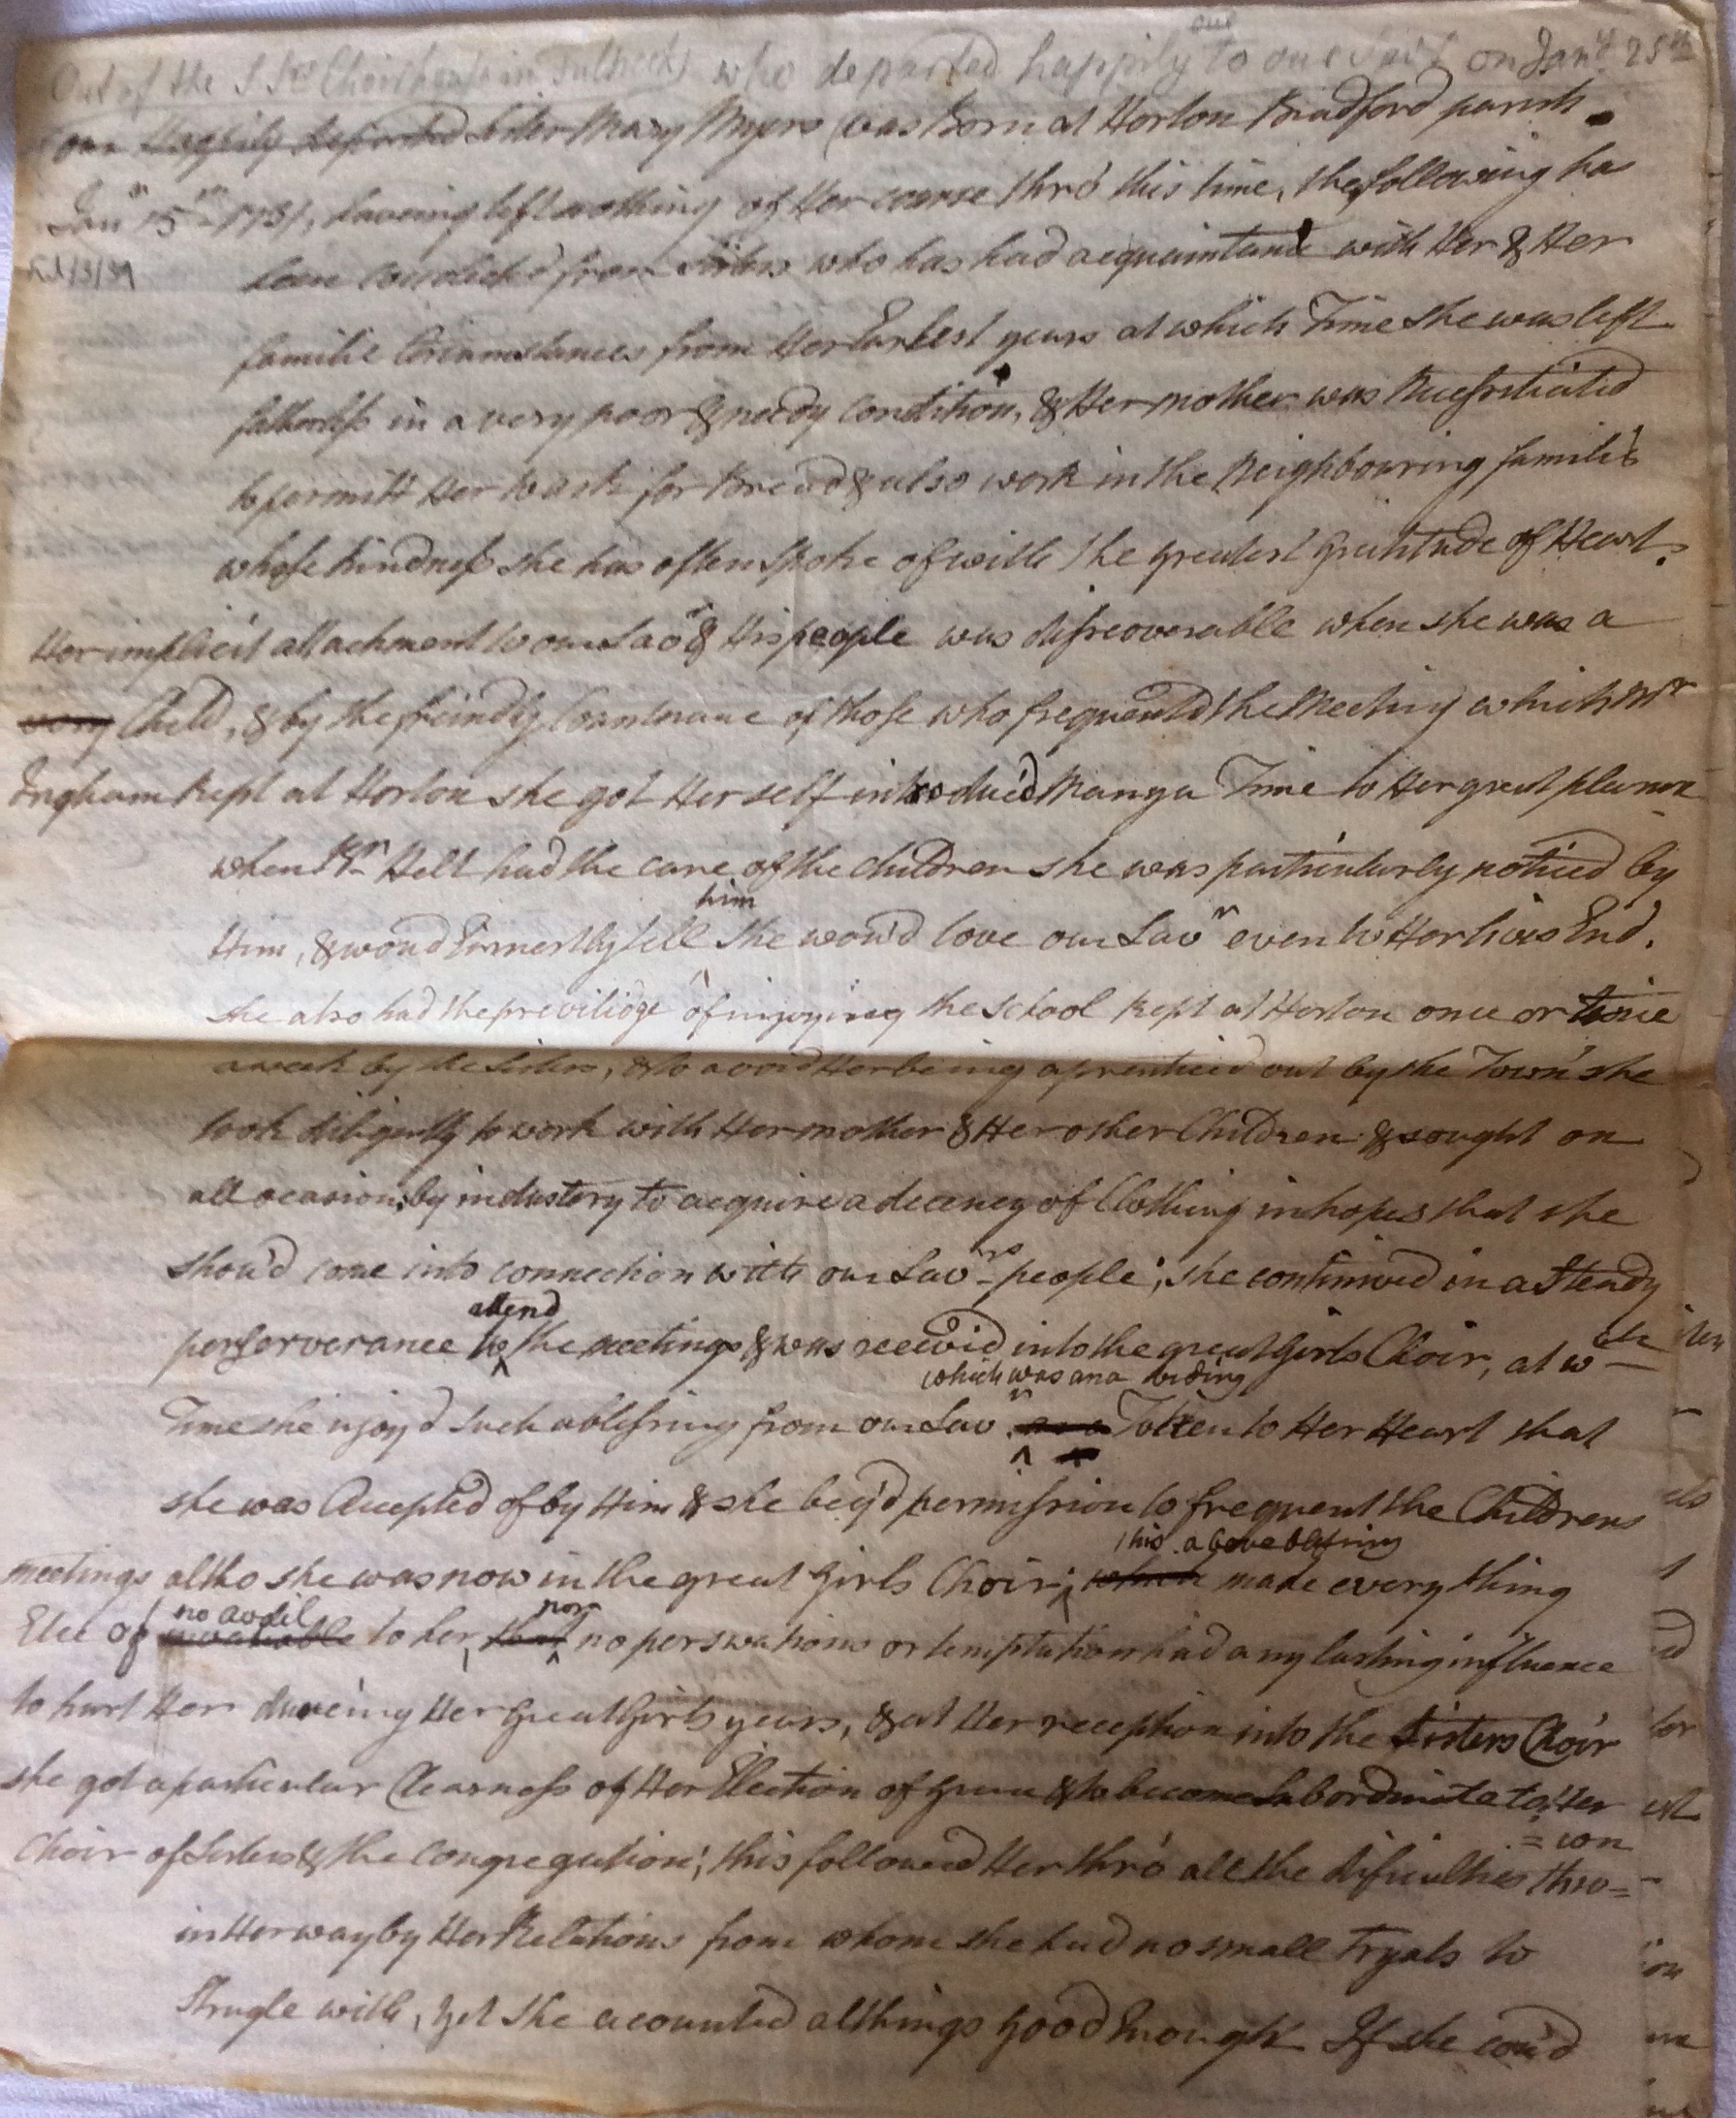 Out of the S Srs Choirhouse in Fulneck who departed happily to our Savr on Jany 25th
our Happily departed Sister Mary Myers was Born at Horton Bradford parish
Jany 15th 1731, haveing left nothing of Her course thro' this time, the following has
been collected from Sisters who has had acquaintance with Her & Her
familie Circumstances from Her Earliest years at which Time she was left
fatherless in a very poor & needy condition, & Her mother was Necessitated
to permitt Her to ask for Bread & also work in the Neighbouring families
whose kindness she has often spoke of with the greatest Gratitude of Heart.
Her implicit attachment to our Savr & His people was discoverable when she was a
very Child, & by the freindly Countenance of those who frequented the Meeting which Mr
Ingham Kept at Horton she got Her self introduc'd Many a Time to Her great pleasure
when Br Hell had the care of the children she was particularly noticed by
him
Him, & woud Earnestly tell she wou'd love our Savr even to Her lives End.
she also had the previlidge of injoying the School kept at Horton once or twice
a week by the Sisters, & to avoid Her being aprenticed out by the Town she
took diligently to work with Her mother & Her other Children & sought on
all ocasions by industery to acquire a decency of Clothing in hopes that she
shou'd come into connection with our Savrs people; she continued in a Steady
attend
perserverance to the meetings & was received into the great Girls Choir, at wch
which was an a biding
Time she injoy'd such a blessing from our Savr as a Token to Her Heart that
she was Accepted of by Him & she beg'd permission to frequent the Childrens
this above blessing
meetings altho she was now in the great Girls Choir; which made every thing
no avail nor
Else of invaluable to her, that no perswations or temptation had any lasting influence
to hurt Her dureing Her Great Girls years, & at Her reception into the Sisters Choir
she got a particular Clearness of Her Election of Grace & to become Subordinate to Her
Choir of Sisters & the congregation; this followed Her thro' all the dificulties thro=
=wn
in Her way by Her Relations from whom she had no small Tryals to
Strugle with, yet she acounted all things Good Enough If she cou'd